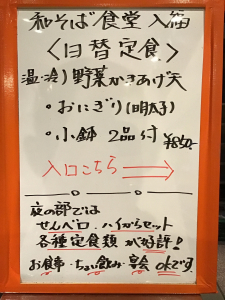 和そば食堂 入福
〈日替定食〉
温・冷)野菜かきあげ天
・おにぎり(明太子)
・小鉢 2品付 ¥850-
入口こちら →
夜の部では
せんベロ、ハイからセット
各種定食類が好評!
お食事・ちょい飲み・宴会 OKです